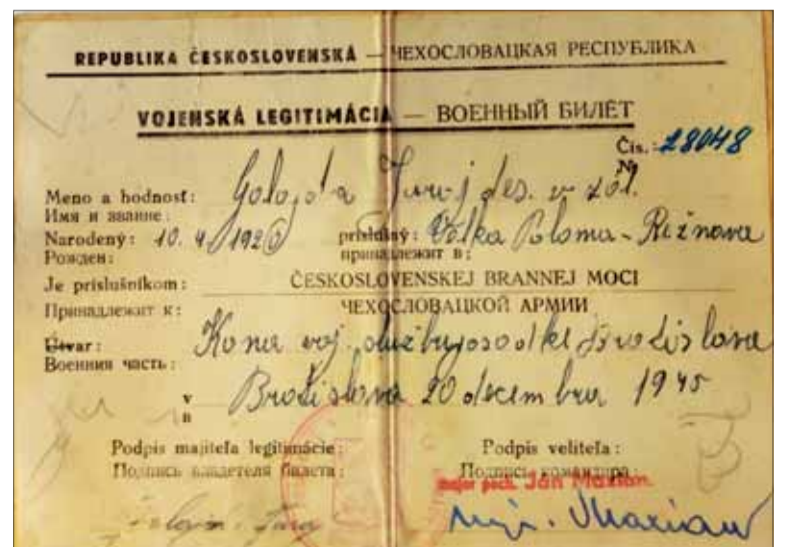 REPUBLIKA ČESKOSLOVENSKÁ — ЧЕХОСЛОВАЦКАЯ РЕСПУБЛИКА
VOJENSKÁ LEGITIMÁCIA — ВОЕННЫЙ БИЛЕТ
Čís.: 28048
№
Meno a hodnosť: Juraj des. v zál.
Имя и звание:
Narodený: 10. 4. 1920 príslušný: Veľká Poloma - Režnava
Рожден: принадлежит в:
Je príslušníkom: ČESKOSLOVENSKEJ BRANNEJ MOCI
Принадлежит к: ЧЕХОСЛОВАЦКОЙ АРМИИ
Útvar: Kona voj. služby Bratislava
Военния часть:
v Bratislava 20 decembra 1945
в
Podpis majiteľa legitimácie: Podpis veliteľa:
Подпись владетеля билета: Подпись командира:
major pech. Ján Maxian.
mjr. Maxian